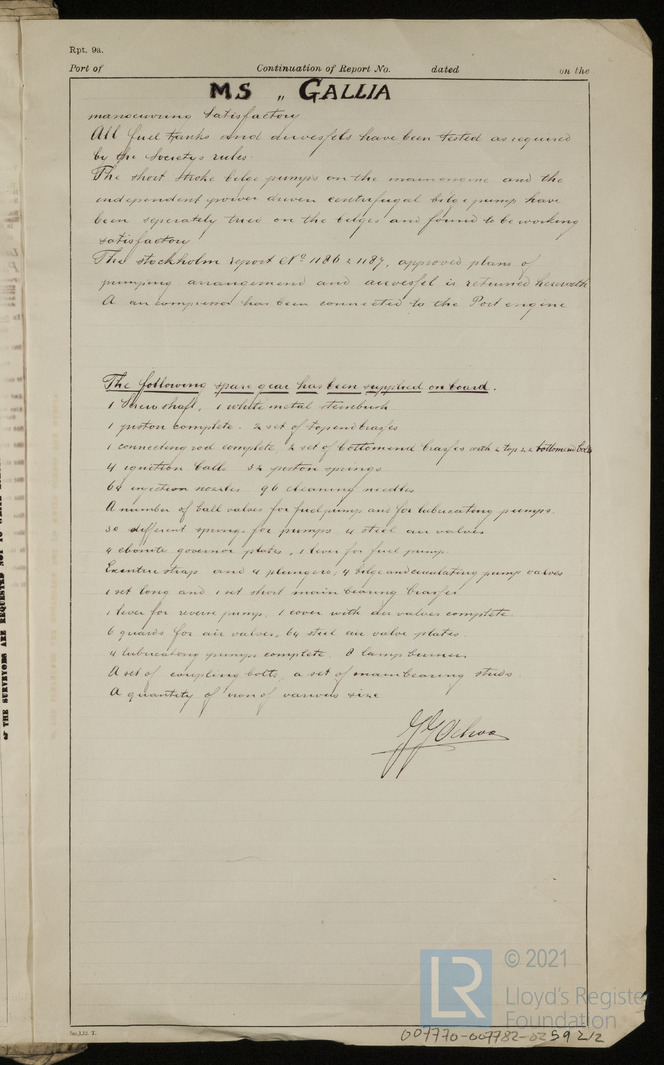 Rpt. 9a.
Port of Continuation of Report No. dated on the
MS „ GALLIA
manoeuvring satisfactory
All fuel tanks and airvessels have been tested as required
by the Societys rules.
The short stroke bilge pumps on the main engine and the
independent power driven centrifugal bilge pump have
been seperately tried on the bilges and found to be working
satisfactory
The Stockholm report No 1186 & 1187, approved plans of
pumping arrangement and airvessel is returned herewith
A air compressor has been connected to the Port engine
The following spare gear has been supplied on board.
1 Screw shaft, 1 white metal sternbush
1 piston complete. 2 set of topend brasses
1 connecting rod complete, 2 set of bottomend brasses with 2 top & 2 bottomend bolts
4 ignition balls 32 piston springs
64 injection nozzles 96 cleaning needles
A number of ball valves for fuel pumps and for lubricating pumps.
30 different springs for pumps, 4 steel air valves
4 ebonite governor plates, 1 lever for fuel pump.
Excentric strap and 4 plungers, 4 bilge and circulating pump valves
1 set long and 1 set short main bearing brasses
1 lever for reserve pump, 1 cover with air valves complete
6 guards for air valves, 64 steel air valve plates.
4 lubricating pumps complete. 8 lamp burners
A set of coupling bolts, a set of main bearing studs
A quantity of iron of various size
© 2021
LR
Lloyd's Register
Foundation
007770-007782-0259 2/2
OF THE SURVEYORS ARE REQUESTED NOT TO WRITE